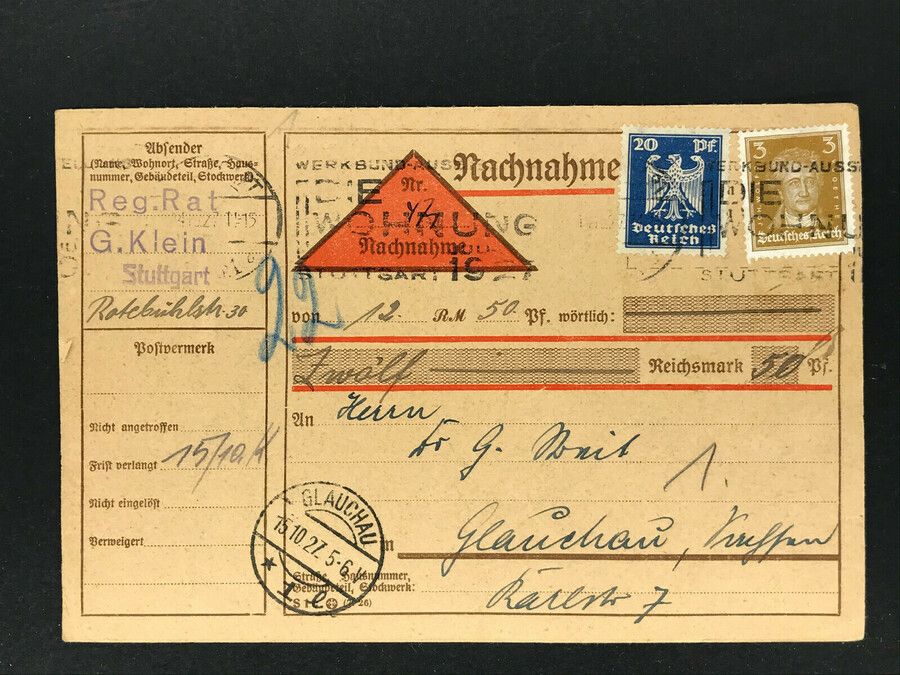 Absender
(Name, Wohnort, Straße, Haus-
nummer, Gebäudeteil, Stockwerk)
Reg.-Rat
G. Klein
Stuttgart
Rotebühlstr. 30
22
Postvermerk
Nicht angetroffen
Frist verlangt 15/10
Nicht eingelöst
Verweigert
Nachnahme
WERKBUND-AUS
DIE
WOHNUNG
STUTTGART 19
Nr.
Nachnahme
20 Pf.
Deutsches
Reich
3 3
Deutsches Reich
WERKBUND-AUSST
DIE
WOHNU
STUTTGART
von 12. RM 50. Pf. wörtlich:
Zwölf Reichsmark 50 Pf.
An Herrn
Dr G. Weit
1.
Glauchau, Sachsen
Straße, Hausnummer,
Gebäudeteil, Stockwerk:
Karlstr 7
GLAUCHAU
15.10.27. 5-6